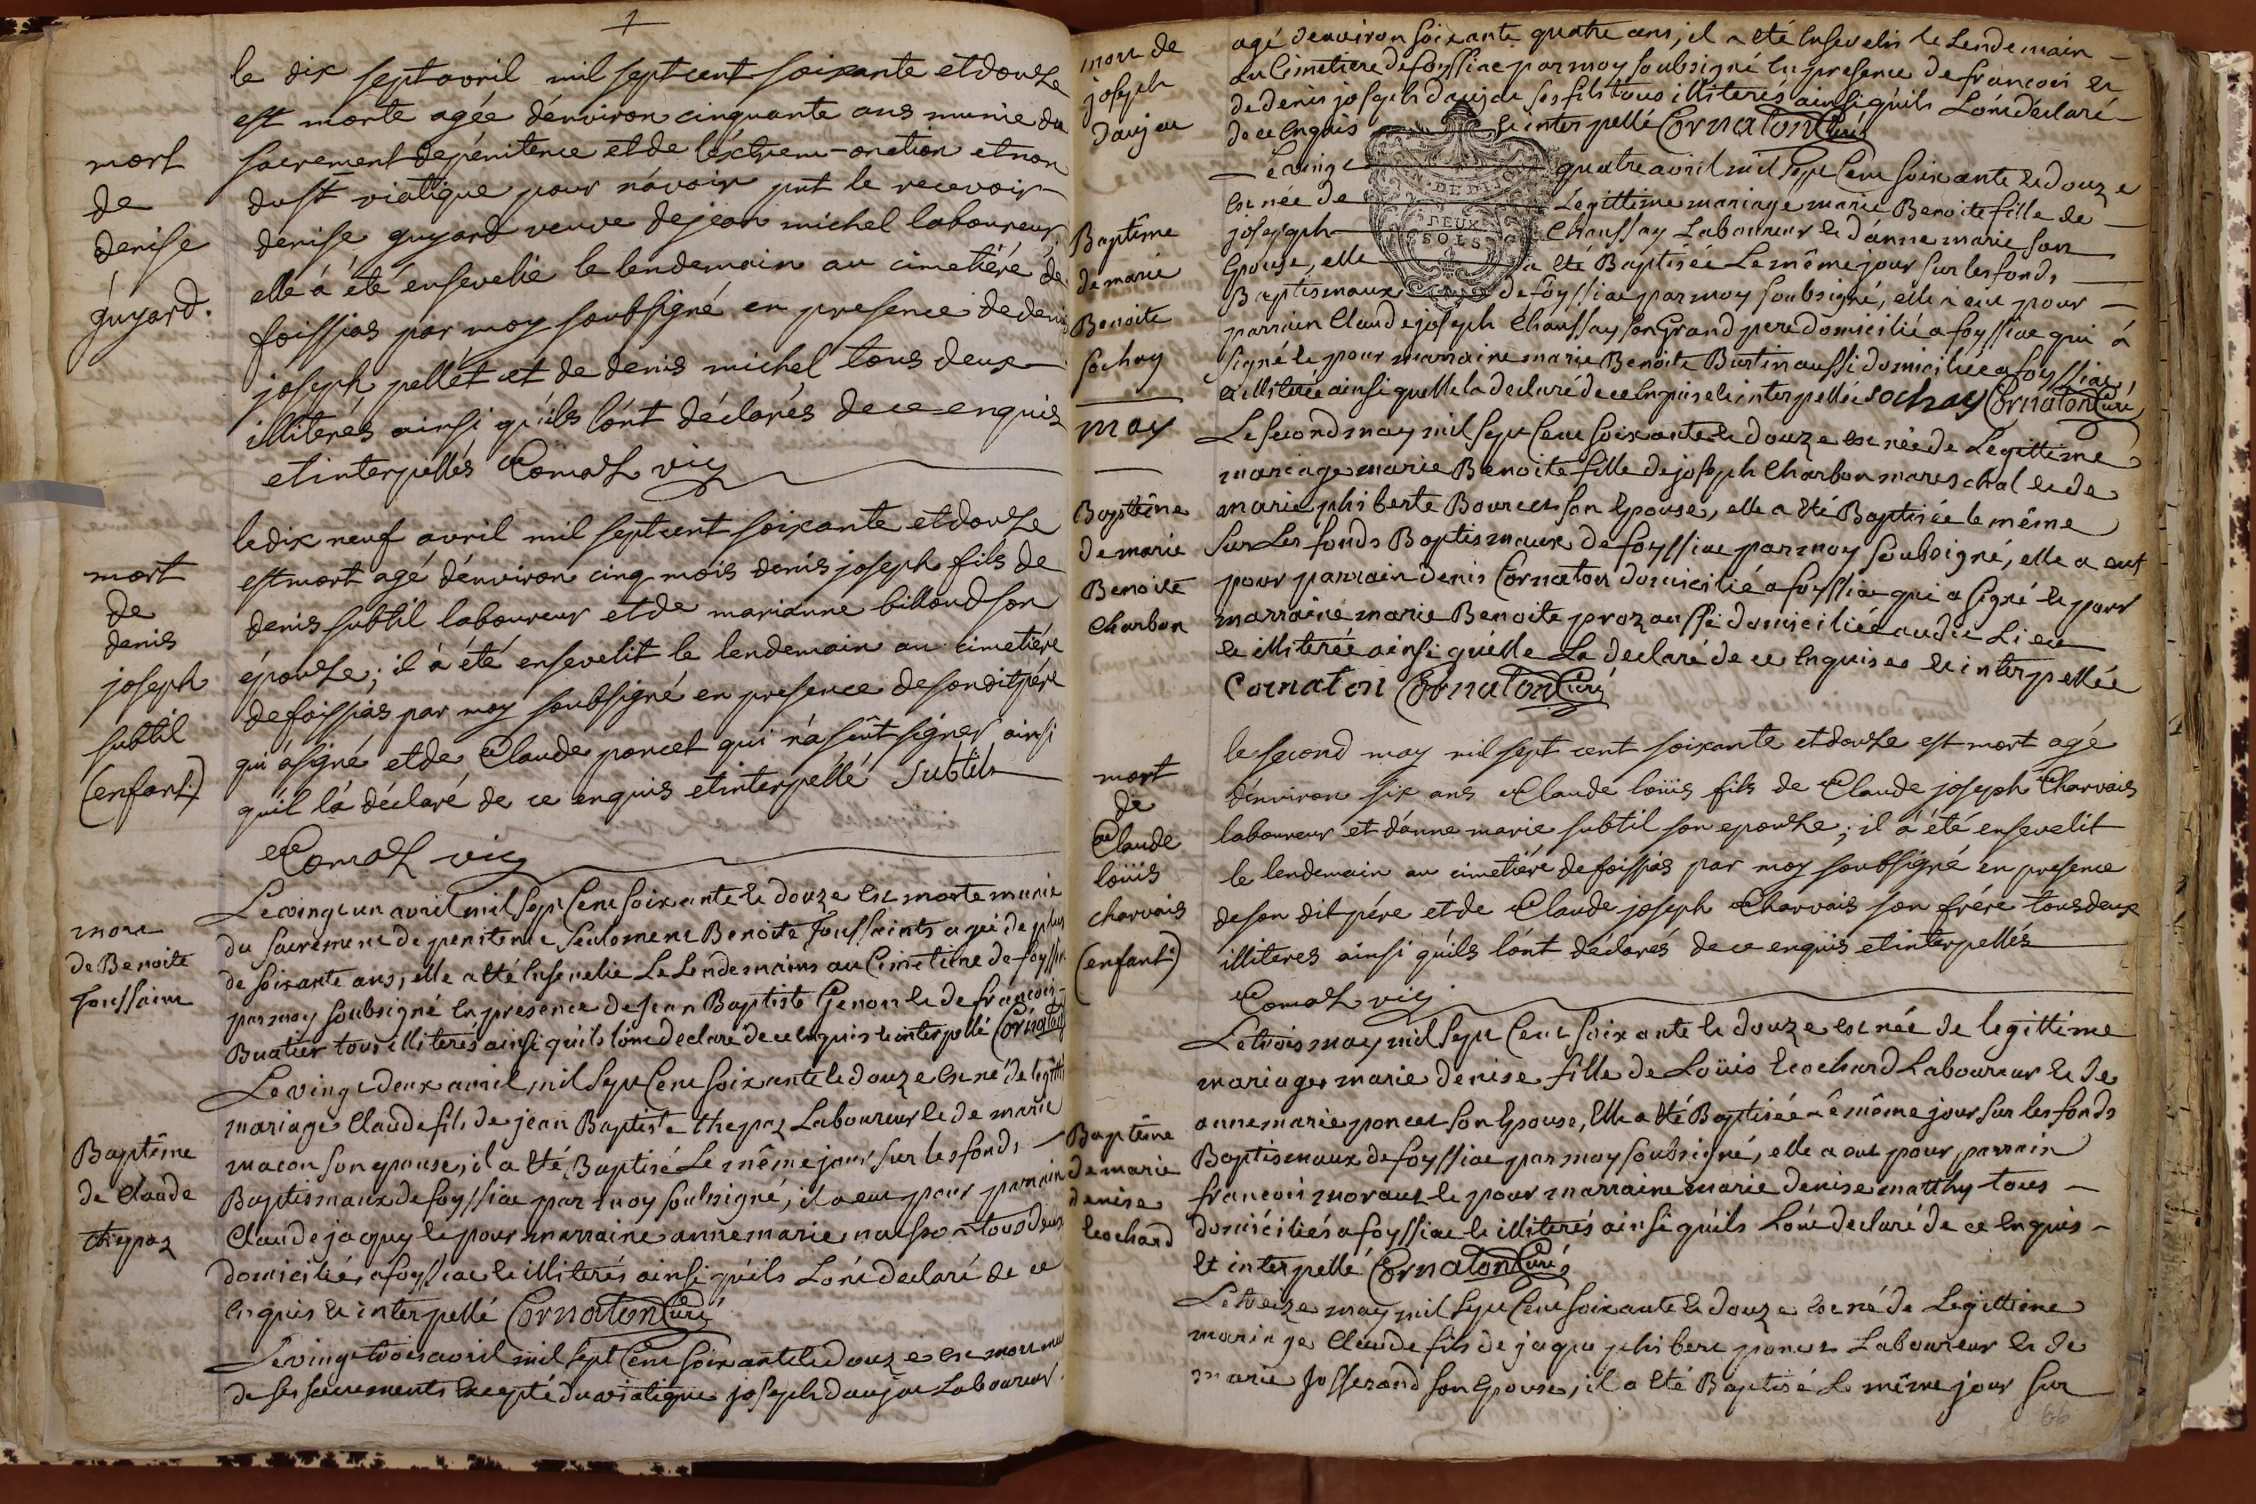 1
le dix sept avril mil sept cent soixante et douze
est morte agée d'environ cinquante ans munie du
mort
sacrement de pénitence et de l'éxtrem-onction et non
de
du st viatique pour n'avoir put le recevoir
denise
denise guyard veuve de jean michel laboureur
guyard.
elle á été ensevelie le lendemain au cimetiére de
foissias par moy soubsigné en presence de denis
joseph pellét et de denis michel tous deux
illiterés ainsi qu'ils l'ont déclarés de ce enquis
et interpellés Comas vic
le dix neuf avril mil sept cent soixante et douze
mort
est mort agé d'environ cinq mois denis joseph fils de
de
denis subtil laboureur et de marianne billoud son
denis
épouse; il á été ensevelit le lendemain au cimetiére
joseph
de foissias par moy soubsigné en presence de son dit pére
subtil
qui á signé et de Claude poncet qui n'a sçut signer ainsi
(enfant)
qu'il l'a déclaré de ce enquis et interpéllé Subtil
Comas vic
Le vingt un avril mil sept Cent soixante et douze est morte munie
mort
du sacrement de penitence seulement Benoite Joussaints agée de plus
de Benoite
de soixante ans, elle a été Ensevelie Le Lendemains au Cimetiere de foyssiac
Joussaint
par moy soubsigné En presence de jean Baptiste Genou et de francois
Buatier tous illiterés ainsi qu'ils l'ont declaré de ce Enquis et interpellé Cornaton
Le vingt deux avril mil sept Cent soixante et douze Est né de legittime
mariage Claude fils de jean Baptiste thepaz Laboureur et de marie
Baptême
macon son epouse, il a été Baptisé Le même jour sur les fonds
de Claude
Baptismaux de foyssiac par moy soubsigné, il a eut pour parrain
thepaz
Claude jaquy et pour marraine anne marie nalson tous deux
domiciliés a foyssiac et illiterés ainsi qu'ils L'ont declaré de ce
Enquis et interpellé Cornaton Curé
Le vingt trois avril mil sept Cent soixante et douze est mort muni
de ses sacrements Excepté du viatique joseph daujac Laboureur
mort de
joseph
daujac
agé d'environ soixante quatre ans, il a été Ensevelis le Lendemain
au Cimetiere de foyssiac par moy soubsigné En presence de francois et
de denis joseph daujac ses fils tous illiterés ainsi qu'ils L'ont declaré
de ce Enquis et interpellé Cornaton Curé
DEUX
SOLS
Le vingt quatre avril mil sept Cent soixante et douze
est née de Légittime mariage marie Benoite fille de
Baptême
joseph Chaussay Laboureur et d'anne marie son
de marie
Epouse, elle a été Baptisée Le même jour sur les fonds
Benoite
Baptismaux de foyssiac par moy soubsigné, elle a eut pour
Sochay
parrain Claude joseph Chaussay son Grand pere domicilié a foyssiac qui á
signé et pour marraine marie Benoite Burtin aussi domiciliée a foyssiac
et illiterée ainsi quelle la declaré de ce Enquise et interpellée Sochay Cornaton Curé
may
Le second may mil sept Cent soixante et douze est née de Legittime
mariage marie Benoite fille de joseph Charbon mareschal et de
Baptême
marie phiberte Bourcet son Epouse, elle a été Baptisée le même
de marie
sur Les fonds Baptismaux de foyssiac par moy soubsigné, elle a eut
Benoite
pour parrain denis Cornaton domicilié a foyssiac qui a signé et pour
Charbon
marraine marie Benoite proz aussi domiciliée audit Lieu
et illiterée ainsi quélle La declaré de ce Enquise et interpellée
Cornaton Cornaton Curé
le second may mil sept cent soixante et douze est mort agé
mort
d'environ six ans Claude loüis fils de Claude joseph Charvais
de
laboureur et d'anne marie subtil son epouse; il á été ensevelit
Claude
le lendemain au cimetiére de foissias par moy soubsigné en presence
loüis
de son dit pére et de Claude joseph Charvais son frére tous deux
charvais
illiteres ainsi qu'ils l'ont déclarés de ce enquis et interpellés
(enfant)
Comas vic
Le trois may mil sept Cent soixante et douze est née de legittime
mariage marie denise fille de Loüis Ecochard Laboureur et de
anne marie poncet son Epouse, Elle a été Baptisée le même jour sur les fonds
Baptême
Baptismaux de foyssiac par moy soubsigné, elle a eut pour parrain
de marie
francois moraux et pour marraine marie denise matthy tous
denise
domiciliés a foyssiac et illiterés ainsi qu'ils L'ont declaré de ce Enquis
Ecochard
Et interpellé Cornaton Curé
Le treize may mil sept Cent soixante et douze est né de Legittime
mariage Claude fils de jaque phibert poncet Laboureur et de
marie Josserand son Epouse, il a été Baptisé Le même jour sur
66